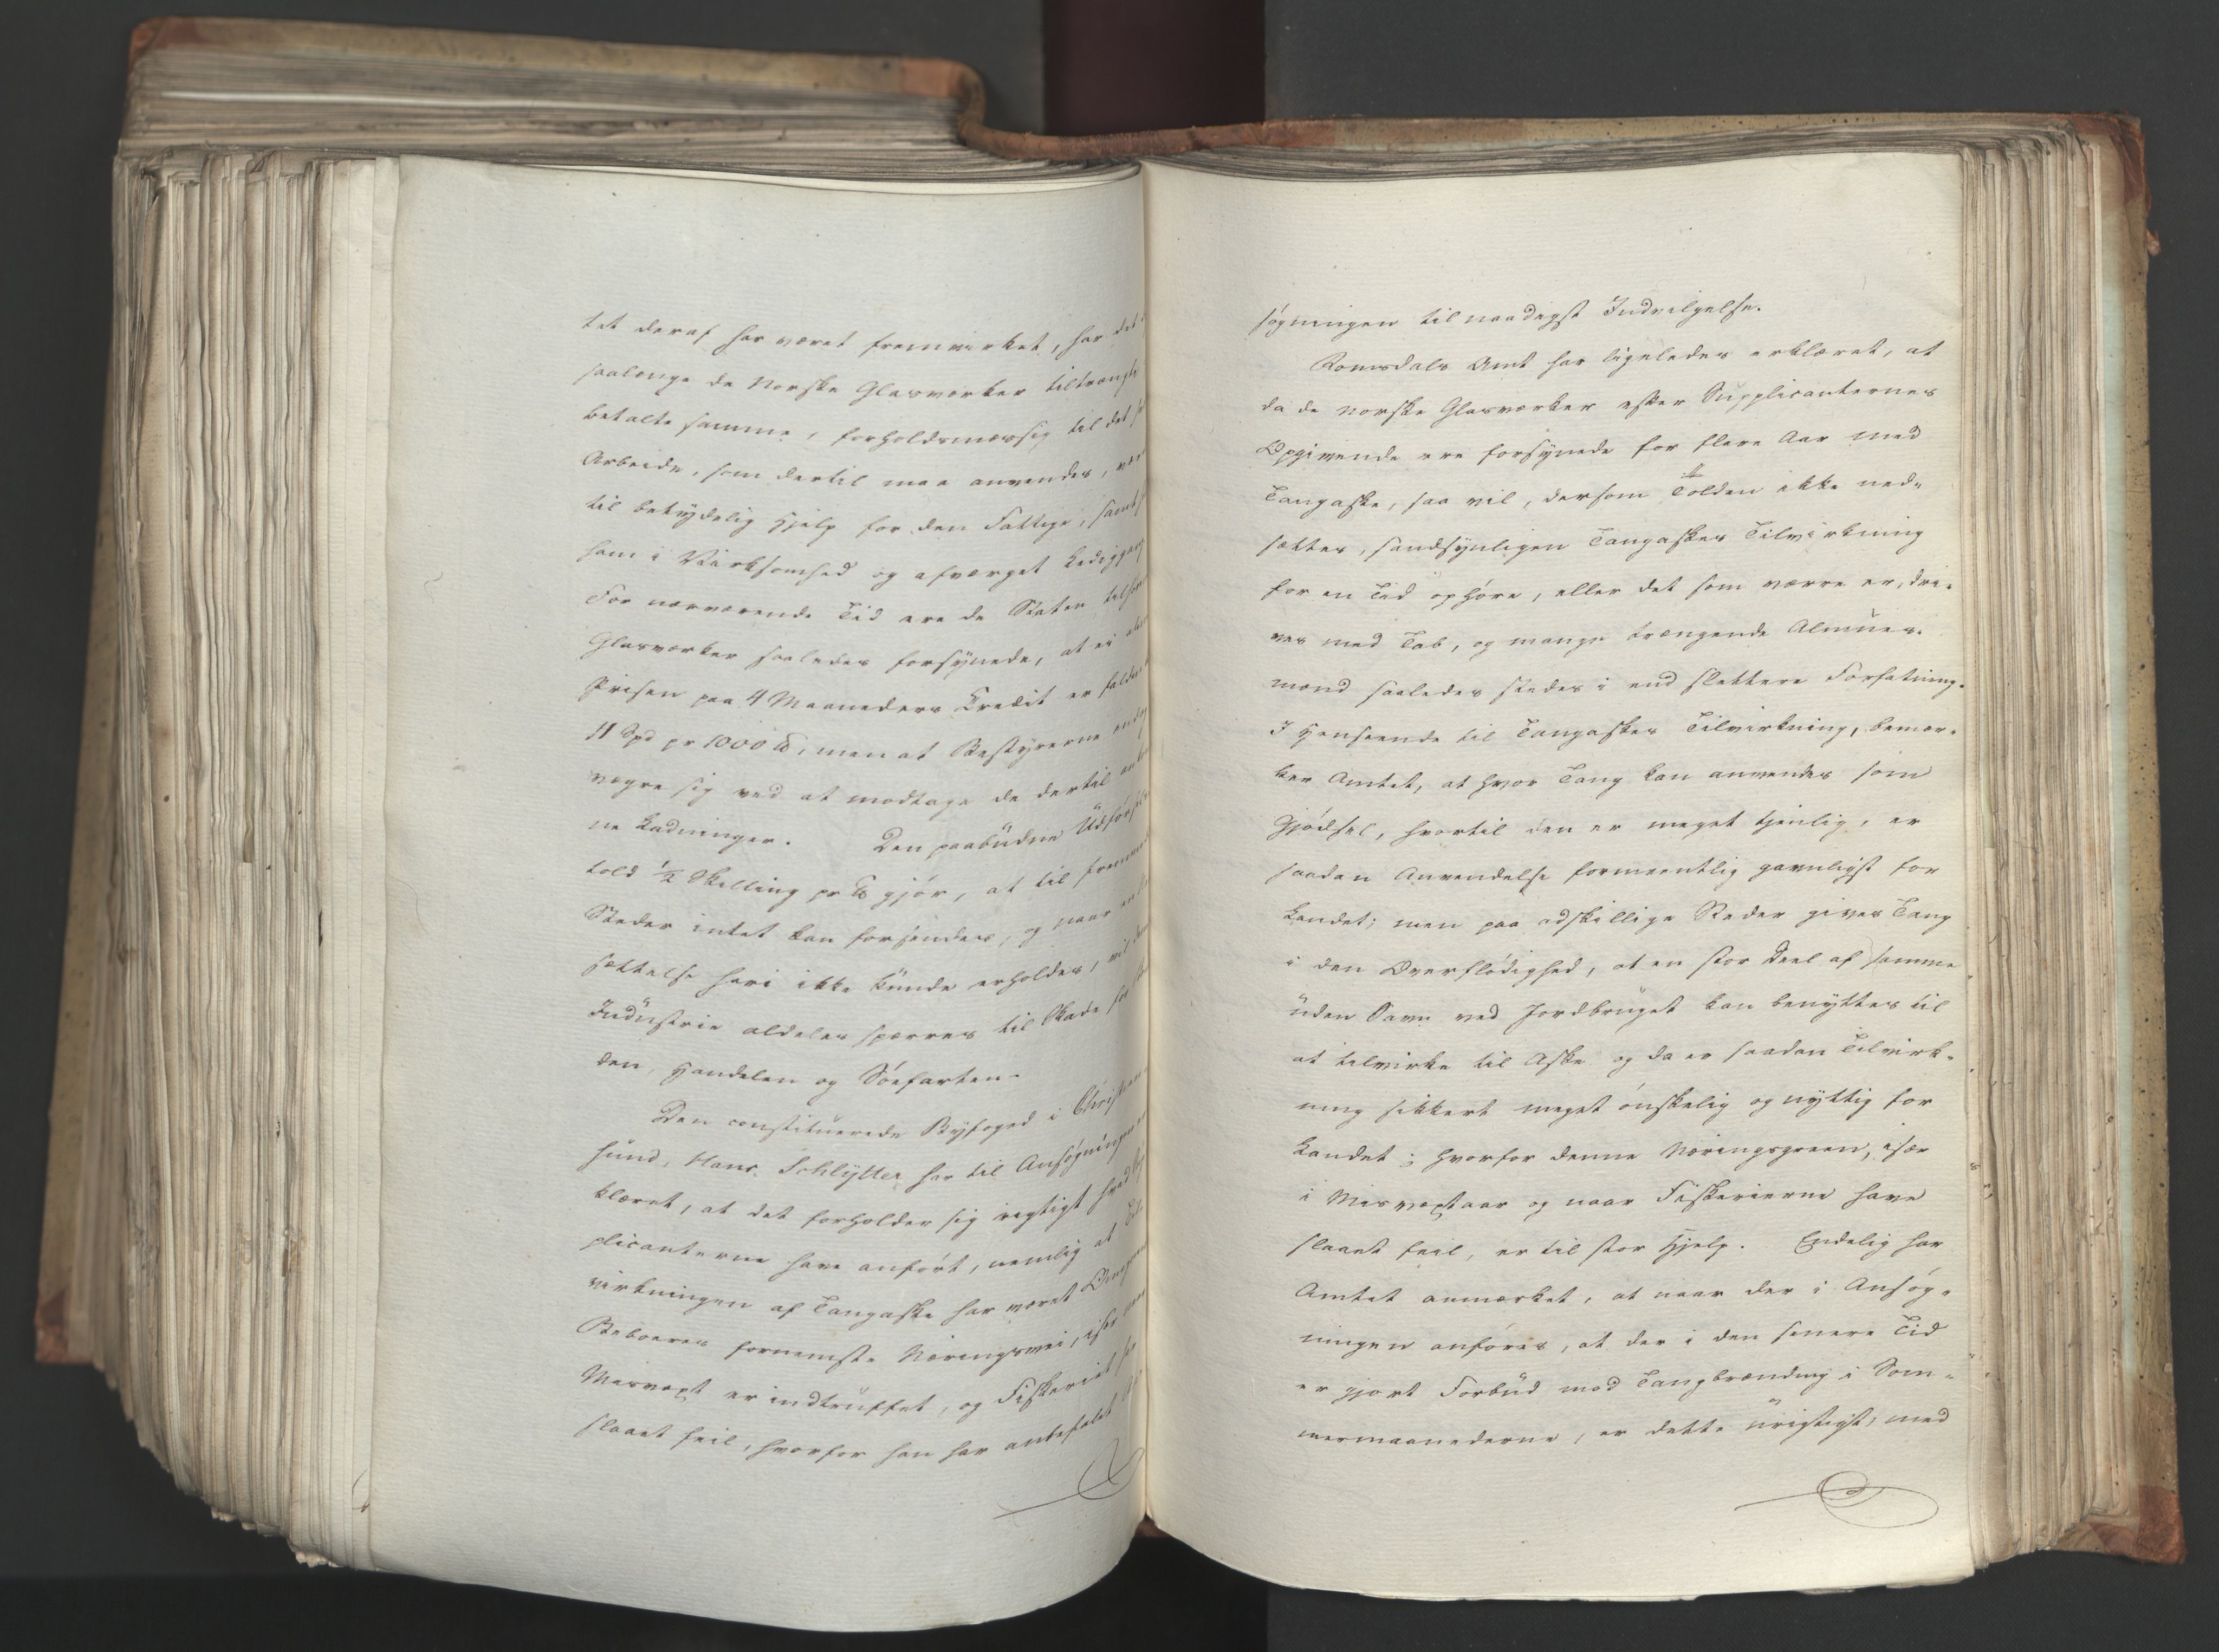 tet deraf har været fremvirket, har det
saalenge de Norske Glasværker tiltrængte
betalte samme, forholdsmæssig til det
Arbeide, som dertil maa anvendes, været
til betydelig Hjelp for den Fattige, samt
ham i Virksomhed og afværget Lediggang
For nærværende Tid ere de Staten tilhør
Glasværker saaledes forsynede, at ei
Prisen paa 4 Maaneders Credit er falden
11 Spd pr 1000 ℔, men at Bestyrerne endog
vægre sig ved at modtage de dertil
ne Ladninger. Den paabudne Udførsels
told ½ Skilling pr ℔ gjør, at til fremmede
Steder intet kan forsendes, og naar
sættelse heri ikke kunde erholdes, vil
Industrie aldeles spærres til Skade for
den, Handelen og Søefarten.
Den constituerede Byfoged i Christian
sund, Hans Schlytter har til Ansøgningen
klæret, at det forholder sig rigtigt hvad
plicanterne have anført, nemlig at Til
virkningen af Tangaske har været Omegnens
Beboeres fornemste Næringsvei, især
Misvæxt er indtruffet, og Fiskeriet har
slaaet feil, hvorfor han har anbefalet
søgningen til naadigst Indvilgelse.
Romsdals Amt har ligeledes erklæret, at
da de norske Glasværker efter Supplicanternes
Opgivende ere forsynede for flere Aar med
Tangaske, saa vil, dersom Tolden ikke ned-
sættes, sandsynligen Tangaskes Tilvirkning
for en Tid ophøre, eller det som værre er, dri-
ves med Tab, og mange trængende Almues-
mænd saaledes stedes i end slettere Forfatning.
I Henseende til Tangaskes Tilvirkning, bemær-
ker Amtet, at hvor Tang kan anvendes som
Gjødsel, hvortil den er meget tjenlig, er
saadan Anvendelse formeentlig gavnligst for
Landet; men paa adskillige Steder gives Tang
i den Overflødighed, at en stor Deel af samme
uden Savn ved Jordbruget kan benyttes til
at tilvirke til Aske og da er saadan Tilvirk-
ning sikkert meget ønskelig og nyttig for
Landet; hvorfor denne Næringsgreen, især
i Misvæxtaar og naar Fiskerierne have
slaaet feil, er til stor Hjelp. Endelig har
Amtet anmærket, at naar der i Ansøg-
ningen anføres, at der i den senere Tid
er gjort Forbud mod Tangbrænding i Som-
mermaanederne, er dette urigtigt, med